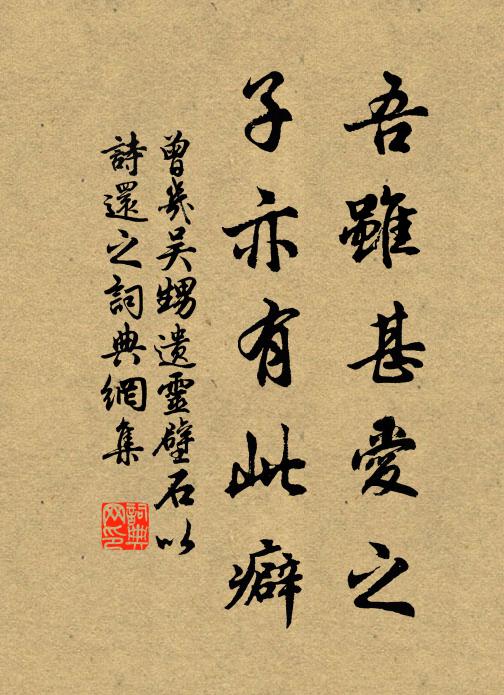 吾雖甚愛之
子亦有此癖
曾幾吳甥遺靈壁石以
詩還之詞典網集
詞典
网印